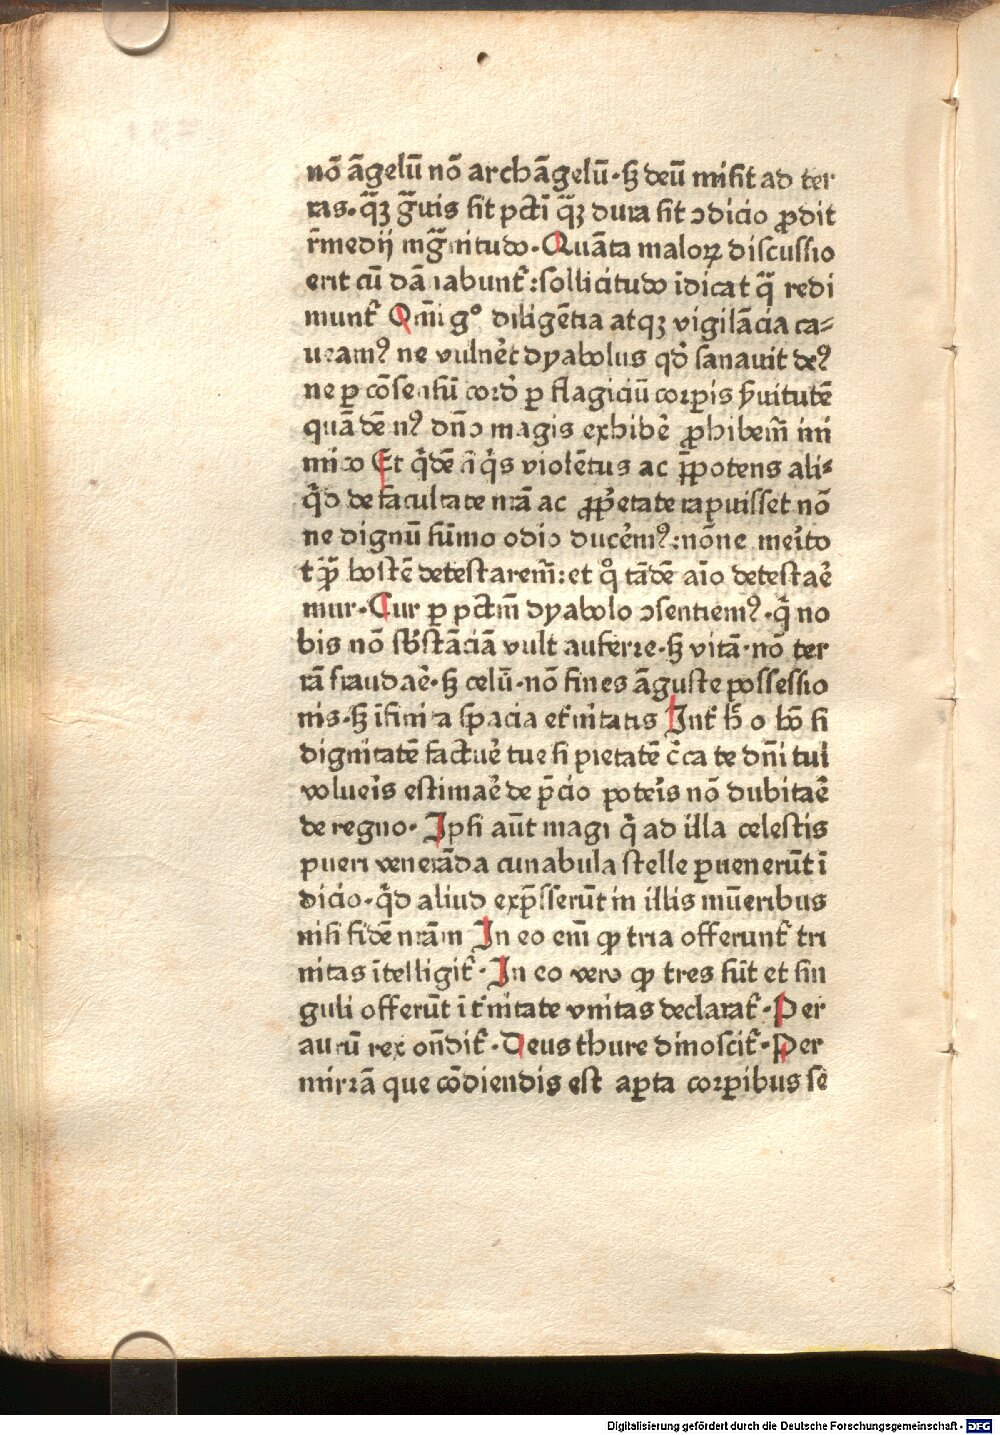 nõ ãgelũ nõ archãgelũ·ꝫ deũ misit ad ter
ras·q̃ꝫ g̃uis sit pctĩ q̃ꝫ dura sit ↄdicio ꝓdit
r̃medij mg̃nitudo·Quãta maloꝝ discussio
erit cũ dãnabunt᷑:sollicitudo ĩdicat q̃ redi
munt᷑ Qm̃i g° diligẽtia atqꝫ vigilãcia ca⸗
ueamꝰ ne vulneꝛ̃t dyabolus qđ sanauit deꝰ
ne ꝑ cõsensũ cord̕ ꝑ flagiciũ corꝑis ẜuitutẽ
quã dẽ nꝰ dño magis exhibẽ ꝓhibem̃ ini
mico Et q̃dẽ ñ q̃s violẽtus ac p̃potens ali⸗
q̃d de facultate nrã ac ꝓp̃etate rapuisset nõ
ne dignũ sũmo odio ducẽmꝰ:nõne meĩto
t q̃ᷓ hostẽ detestarem̃:et q̊ tãdẽ aĩo detestaẽ
mur·Cur ꝑ pctm̃ dyabolo ↄsentiemꝰ·q̃ no
bis nõ sb̃stãciã vult auferre·ꝫ vitã·nõ ter
rã fraudaẽ·ꝫ celũ·nõ fines ãguste possessio
nis·ꝫ ĩfinita spacia et᷑nitatis Int᷑ h̃ o hõ si
dignitatẽ factuẽ tue si pietatẽ c̃ca te dñi tui
volueĩs estimaẽ de p̃cio poteĩs nõ dubitaẽ
de regno·Ipsi aũt magi q̃ ad illa celestis
pueri venerãda cunabula stelle ꝑuenerũt ĩ
dicio·q̃d aliud exp̃sserũt in illis mũeribus
nisi fidẽ nrãm In eo em̃ ꝙ tria offerunt᷑ tri
nitas ĩtelligit᷑·In eo vero ꝙ tres sũt et sin
guli offerũt ĩ t᷑nitate vnitas declarat᷑·Per
aurũ rex oñdit᷑·Deus thure dinoscit᷑·Per
mirrã que cõdiendis est aꝑta corꝑibus sẽ
Digitalisierung gefördert durch die Deutsche Forschungsgemeinschaft - DFG